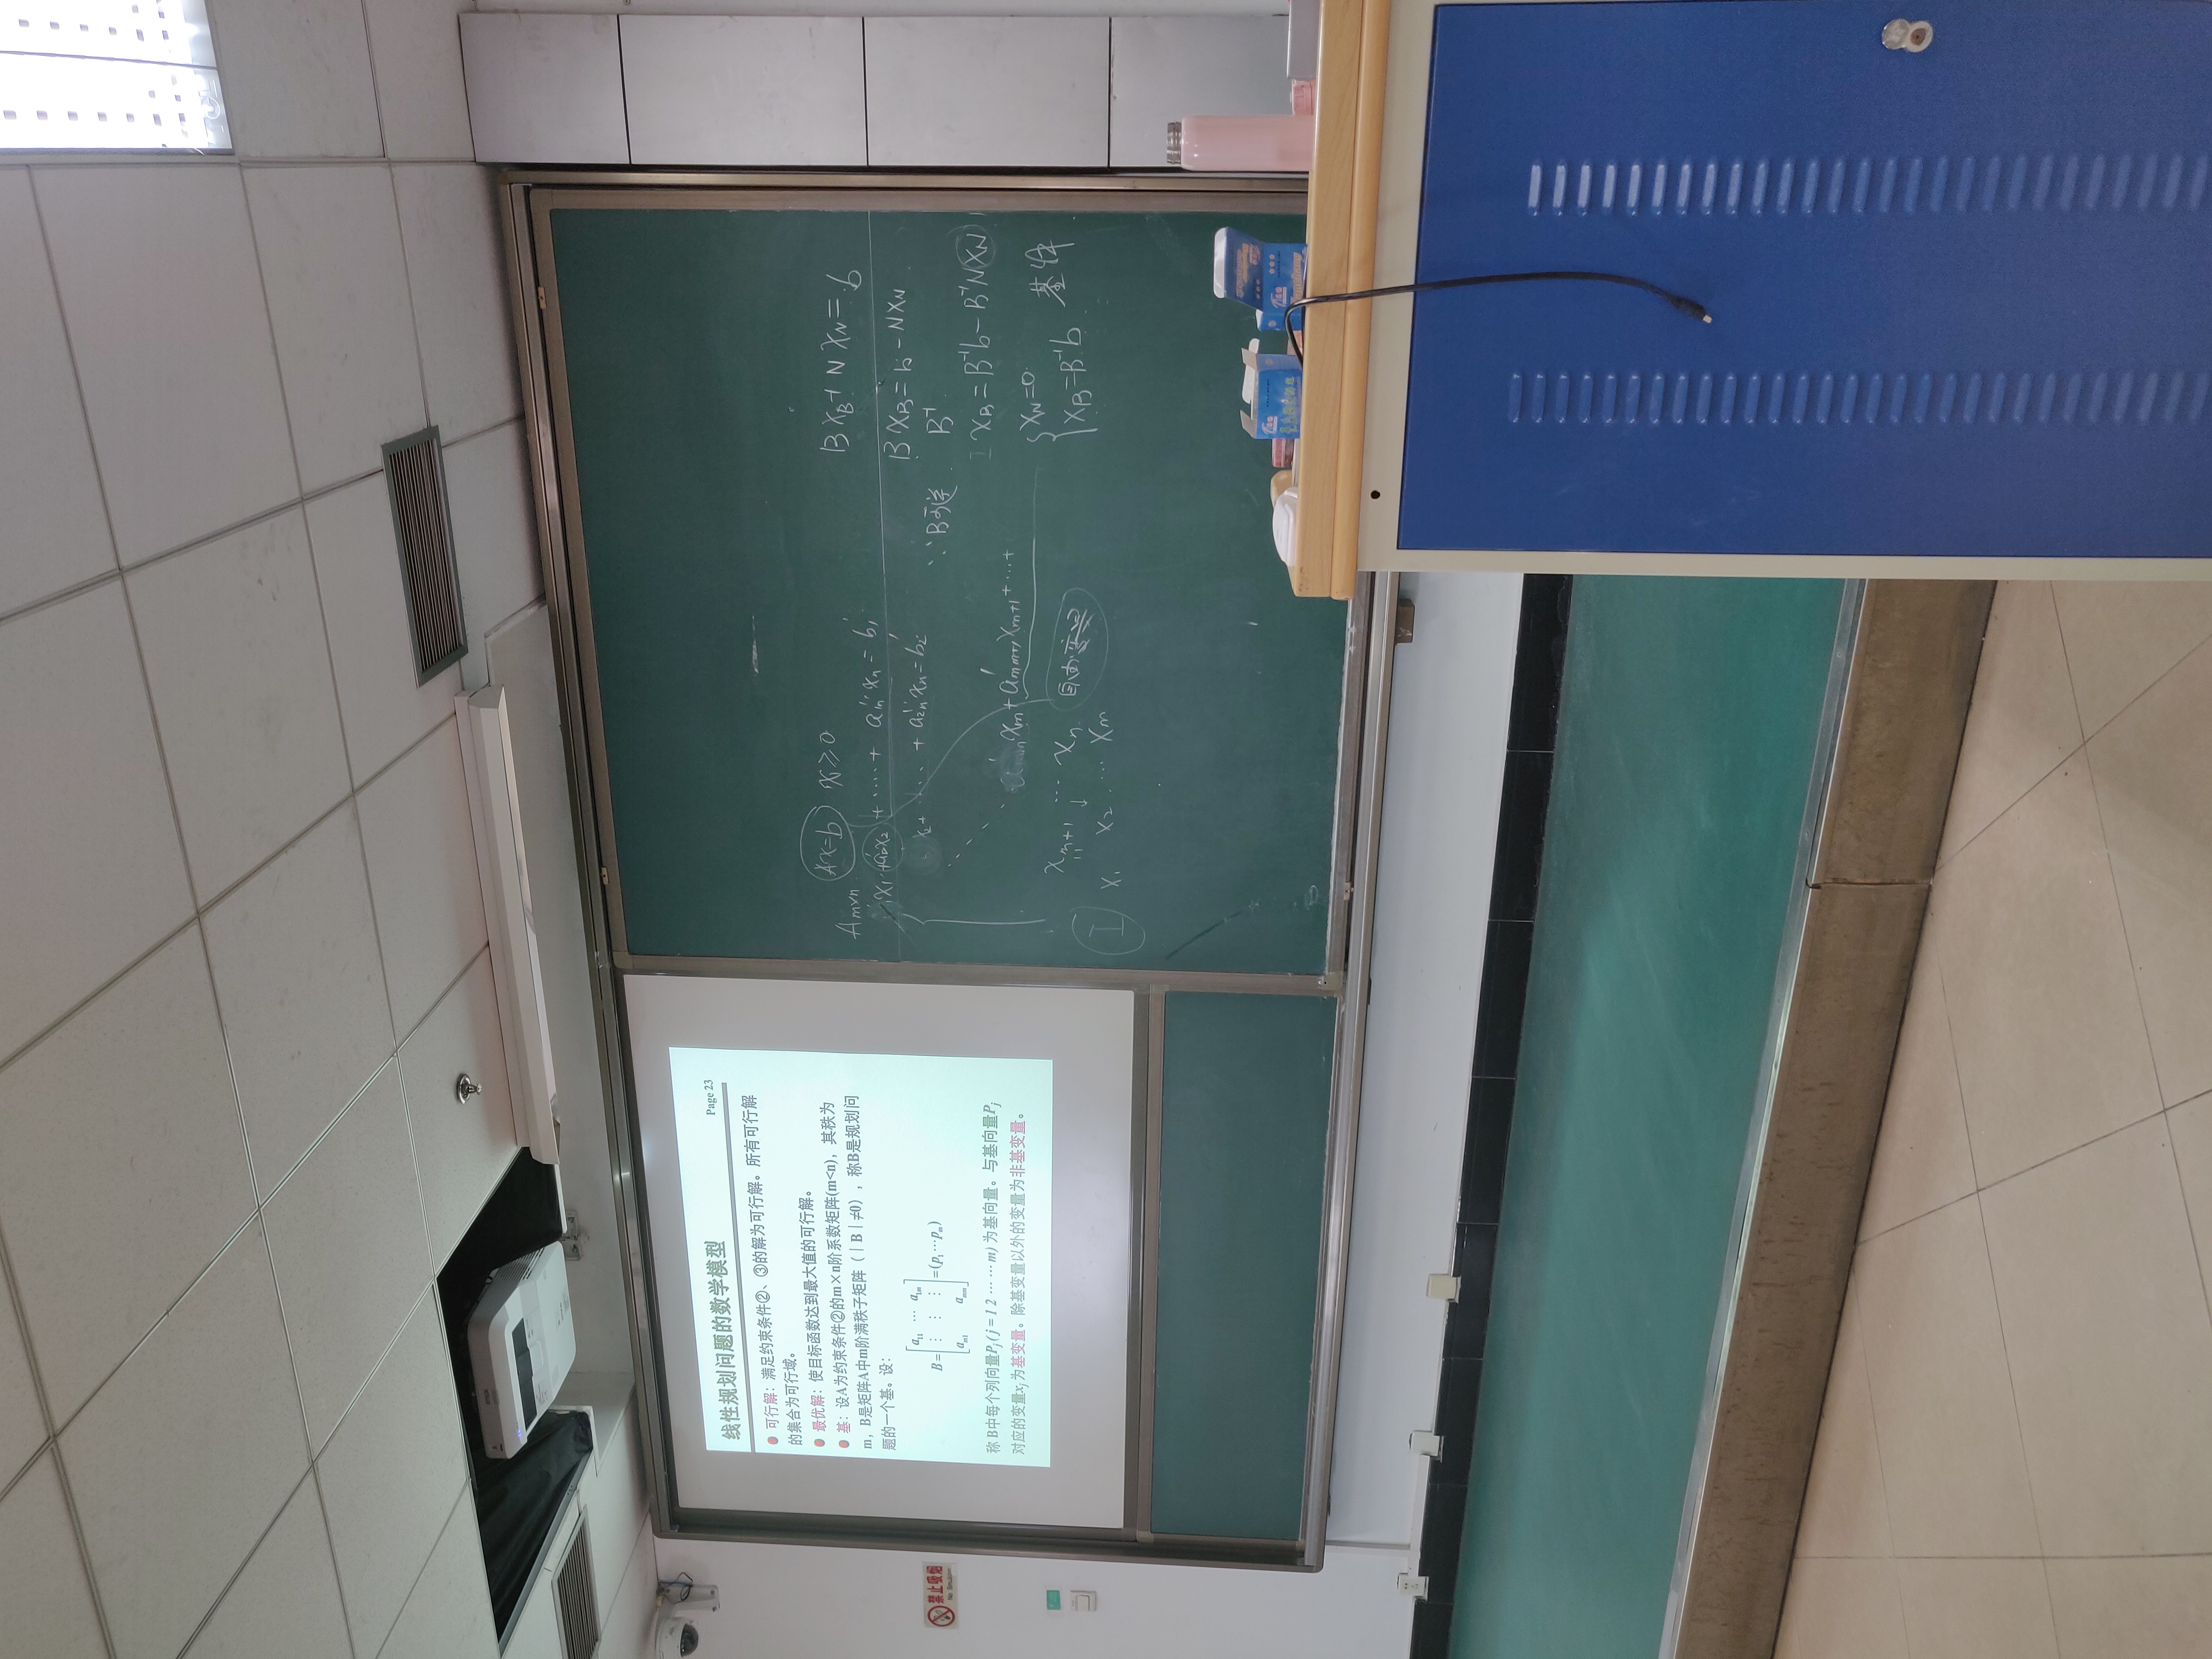 线性规划问题的数学模型
Page 23
可行解：满足约束条件②、③的解为可行解。所有可行解
的集合为可行域。
最优解：使目标函数达到最大值的可行解。
基：设A为约束条件②的m×n阶系数矩阵(m<n)，其秩为
m，B是矩阵A中m阶满秩子矩阵（∣B∣≠0），称B是规划问
题的一个基。设：
B= [ a11 ⋯ a1m ; ⋮ ⋮ ⋮ ; am1 amm ] =(p1⋯pm)
称 B中每个列向量Pj ( j = 1 2 ⋯ ⋯ m) 为基向量。与基向量Pj
对应的变量xj为基变量。除基变量以外的变量为非基变量。
禁止吸烟
No Smoking
Ax=b x≥0
Am×n
x1+ x2 + ⋯⋯ + a1n'' xn = b1'
x2+ ⋯ + a2n'' xn = b2'
xm+ a'mm+1 xm+1 + ⋯ +
xm+1 ⋯ xn
自由
I x1 x2 ⋯ xm
BXB + NXN = b
BXB = b - NXN
∵B可逆 B⁻¹
I XB = B⁻¹b - B⁻¹NXN
XN=0
XB=B⁻¹b 基解